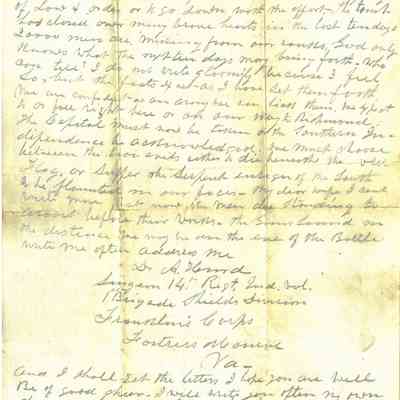 of law & order or to go down with the effort - the tomb
has closed over many brave hearts in the last ten days
20000 men are missing from our ranks, God only
Knows what the next ten days may bring forth - Who
can tell! I do not write gloomily because I feel
so, but the facts are as I have set them forth
We are confident - as an army we can lick them. We expect
to be fighting right here or on our way to Richmond.
The Capital must now be taken or the Southern In-
dependence be acknowledged. We must choose
between the two ends either to die beneath the old
Flag, or suffer the Serpent ensign of the South
to be flaunted in our faces - My dear wife I cant
write more just now, the men are standing to
arms before their tents. The Guns sound in
the distance we may be on the eve of the Battle
write me often address me
Dr A. Heard
Surgeon 14" Regt. Ind. Vol.
1" Brigade Shields Division
Franklin's Corps
Fortress Monroe
Va -
and I shall get the letters I hope you are well
Be of good cheer. I will write you often my own